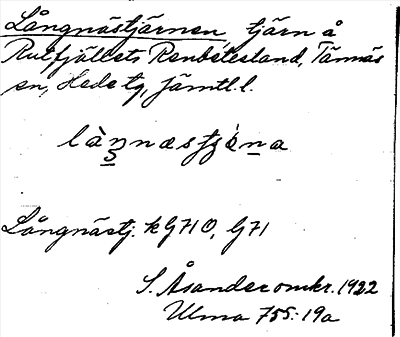 Långnästjärnen, tjärn å
Rutfjällets Renbetesland, Tännäs
sn, Hede tg, Jämtl. l.
làŋnæstjæ̀ṇa
Långnästj. kG71Ö, G71
S. Åsander omkr. 1922
Ulma 755:19a